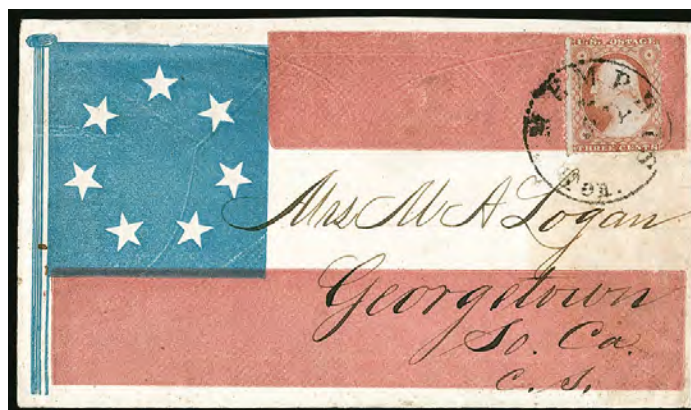 U.S. POSTAGE
THREE CENTS
MEMPHIS
Ten.
Mrs M A Logan
Georgetown
So. Ca.
C. S.